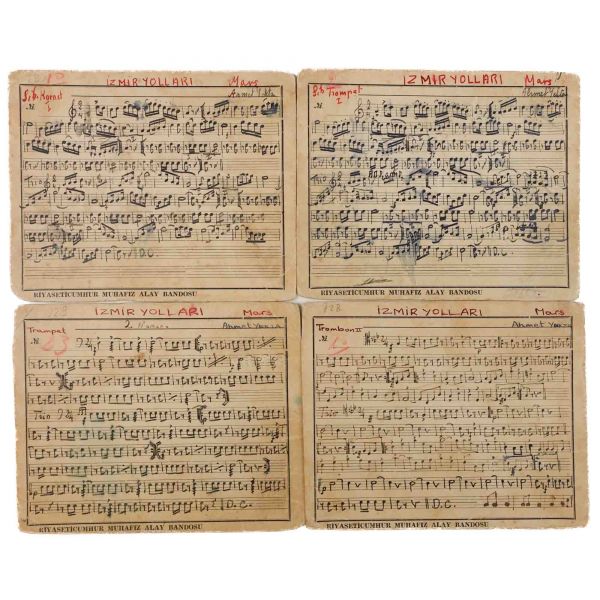 İZMİR YOLLARI Marş
Si b Kornet Ahmet Yekta
I
Trio
D.C.
RİYASETİCUMHUR MUHAFIZ ALAY BANDOSU
İZMİR YOLLARI Marş
Si b Trompet Ahmet Yekta
I
Trio
D.C.
RİYASETİCUMHUR MUHAFIZ ALAY BANDOSU
128 İZMİR YOLLARI Marş
Trampet Ahmet Yekta
Trio
D.C.
RİYASETİCUMHUR MUHAFIZ ALAY BANDOSU
128 İZMİR YOLLARI Marş
Trombon II Ahmet Yekta
Trio
D.C.
RİYASETİCUMHUR MUHAFIZ ALAY BANDOSU